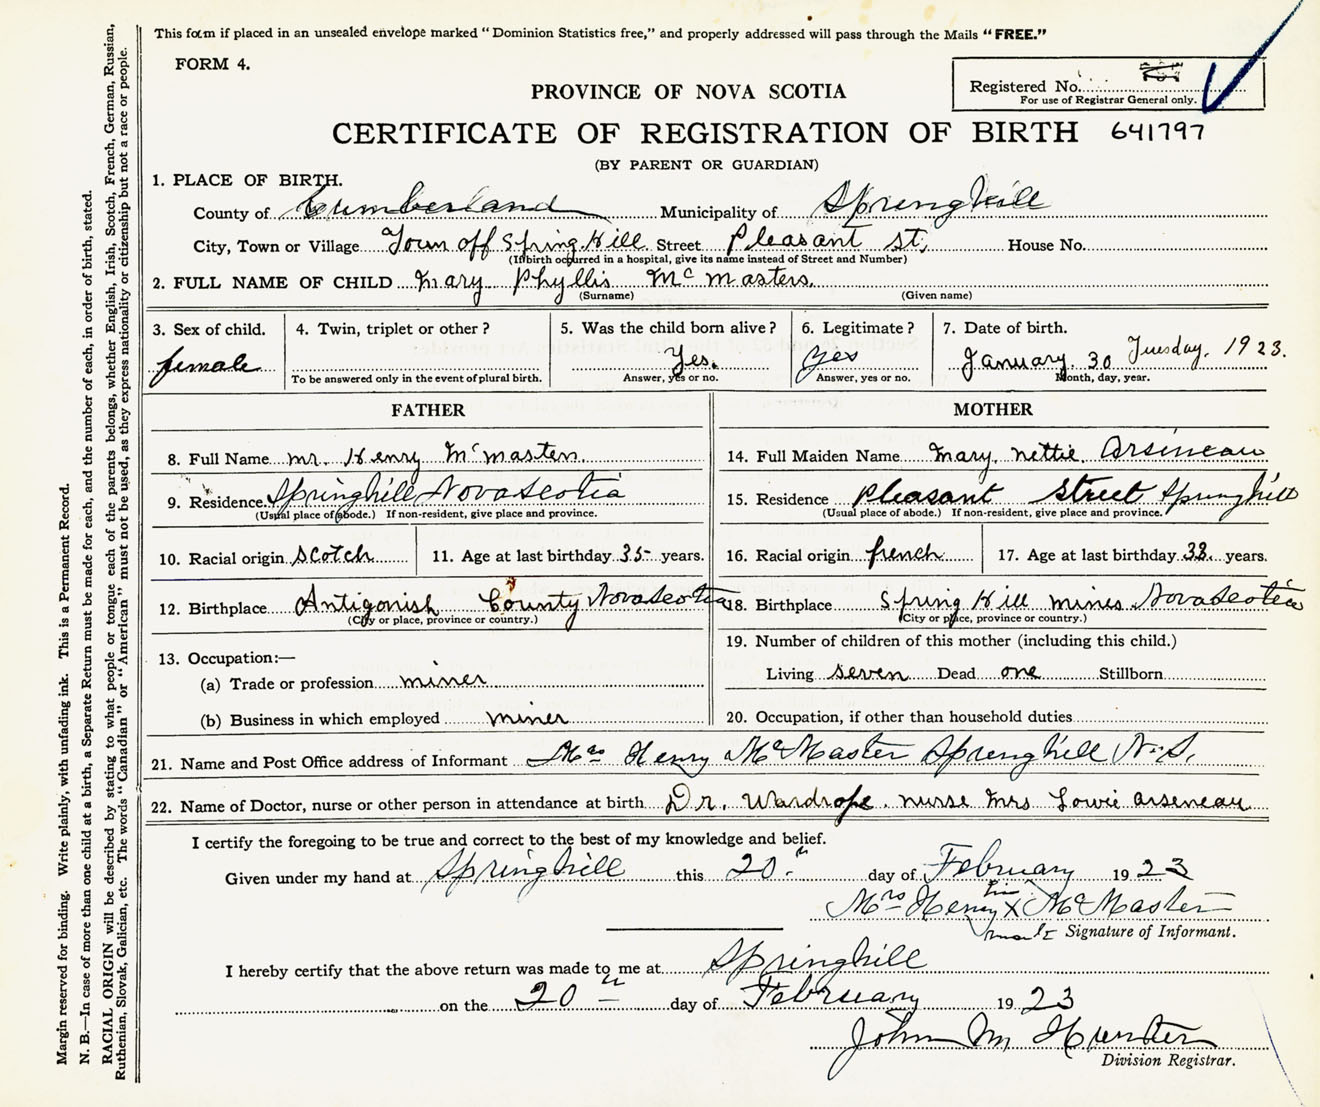 This form if placed in an unsealed envelope marked "Dominion Statistics free," and properly addressed will pass through the Mails "FREE."
FORM 4.
Registered No.
For use of Registrar General only.
PROVINCE OF NOVA SCOTIA
CERTIFICATE OF REGISTRATION OF BIRTH 641797
(BY PARENT OR GUARDIAN)
1. PLACE OF BIRTH.
County of Cumberland Municipality of Springhill
City, Town or Village Town off Spring Hill Street Pleasant St, House No.
(If birth occurred in a hospital, give its name instead of Street and Number)
2. FULL NAME OF CHILD Mary Phyllis McMasters
(Surname) (Given name)
3. Sex of child. 4. Twin, triplet or other? 5. Was the child born alive? 6. Legitimate? 7. Date of birth.
female Yes. yes January 30 Tuesday. 1923.
To be answered only in the event of plural birth. Answer, yes or no. Answer, yes or no. Month, day, year.
FATHER MOTHER
8. Full Name mr. Henry McMasters 14. Full Maiden Name Mary Nettie Arsineau
9. Residence Springhill Nova Scotia 15. Residence Pleasant Street Springhill
(Usual place of abode.) If non-resident, give place and province. (Usual place of abode.) If non-resident, give place and province.
10. Racial origin scotch 11. Age at last birthday 35 years. 16. Racial origin french 17. Age at last birthday 33. years.
12. Birthplace Antigonish County Nova Scotia 18. Birthplace Spring Hill mines Nova Scotia
(City or place, province or country.) (City or place, province or country.)
13. Occupation:— 19. Number of children of this mother (including this child.)
(a) Trade or profession miner Living seven Dead one Stillborn
(b) Business in which employed miner 20. Occupation, if other than household duties
21. Name and Post Office address of Informant Mrs Henry McMaster Springhill N.S.
22. Name of Doctor, nurse or other person in attendance at birth Dr. Wardrope. nurse Mrs Lowie arseneau
I certify the foregoing to be true and correct to the best of my knowledge and belief.
Given under my hand at Springhill this 20th day of February 1923
Mrs Henry her X mark McMaster
Signature of Informant.
I hereby certify that the above return was made to me at Springhill
on the 20th day of February 1923
John M Hunter
Division Registrar.
Margin reserved for binding. Write plainly, with unfading ink. This is a Permanent Record.
N. B.—In case of more than one child at a birth, a Separate Return must be made for each, and the number of each, in order of birth, stated.
RACIAL ORIGIN will be described by stating to what people or tongue each of the parents belongs, whether English, Irish, Scotch, French, German, Russian,
Ruthenian, Slovak, Galician, etc. The words "Canadian" or "American" must not be used, as they express nationality or citizenship but not a race or people.